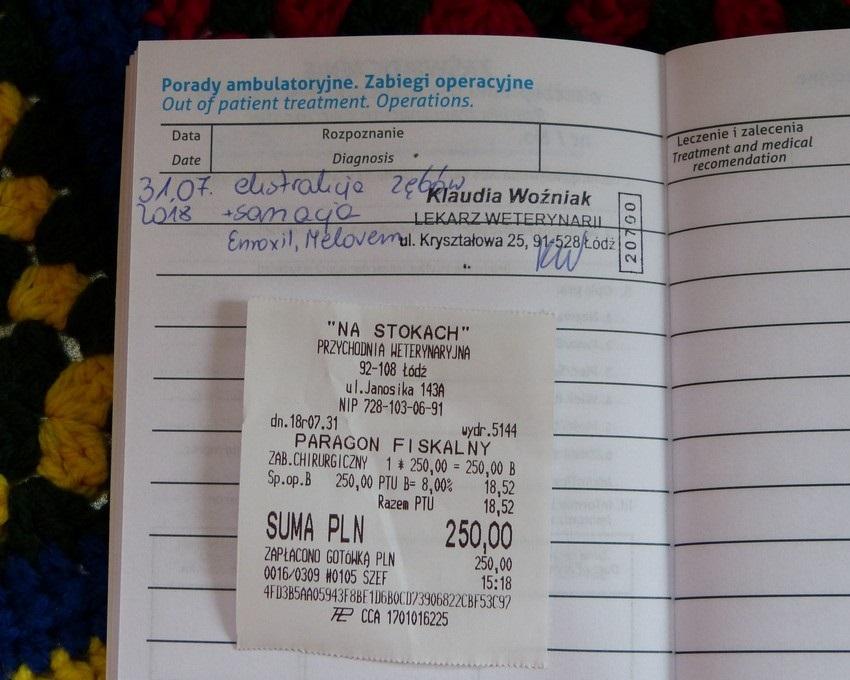 Porady ambulatoryjne. Zabiegi operacyjne
Out of patient treatment. Operations.
Data
Date
Rozpoznanie
Diagnosis
Leczenie i zalecenia
Treatment and medical
recomendation
31.07. ekstrakcja zębów
2018 + sanacja
Enroxil, Melovem
Klaudia Woźniak
LEKARZ WETERYNARII
ul. Kryształowa 25, 91-528 Łódź
20700
KW
"NA STOKACH"
PRZYCHODNIA WETERYNARYJNA
92-108 Łódź
ul.Janosika 143A
NIP 728-103-06-91
dn.18r07.31 wydr.5144
PARAGON FISKALNY
ZAB.CHIRURGICZNY 1 * 250,00 = 250,00 B
Sp.op.B 250,00 PTU B= 8,00% 18,52
Razem PTU 18,52
SUMA PLN 250,00
ZAPŁACONO GOTÓWKĄ PLN 250,00
0016/0309 #0105 SZEF 15:18
4FD3B5AA05943F8BE1D6B0CD73906822CBF53C97
CCA 1701016225